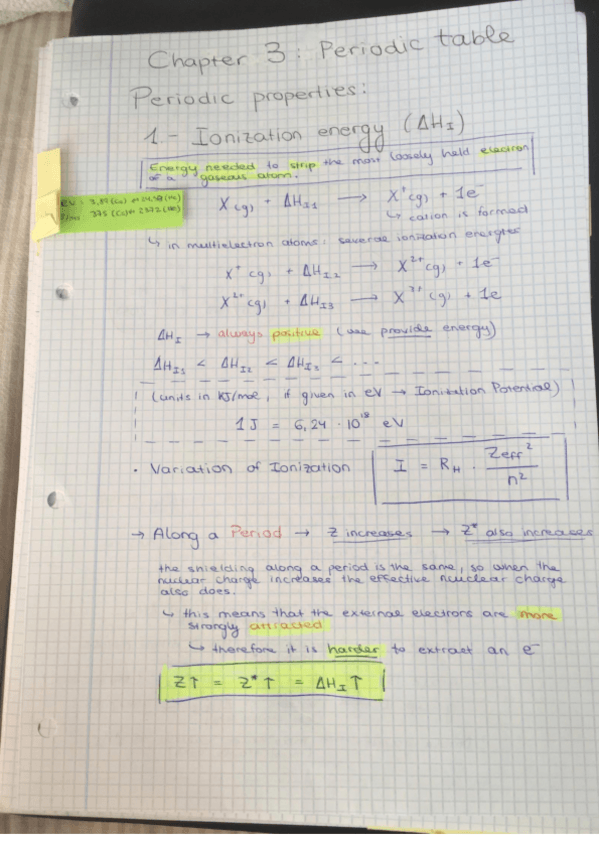 Chapter 3: Periodic table
Periodic properties:
1.- Ionization energy (ΔHI)
Energy needed to strip the most loosely held electron
of a gaseous atom.
eV: 3,89 (Cs) → 24,58 (He)
375 (Cs) → 2372 (He)
X(g) + ΔHI1 → X⁺(g) + 1e⁻
↳ cation is formed
↳ in multielectron atoms: severae ionization energies
X⁺(g) + ΔHI2 → X²⁺(g) + 1e⁻
X²⁺(g) + ΔHI3 → X³⁺(g) + 1e
ΔHI → always positive (we provide energy)
ΔHI1 < ΔHI2 < ΔHI3 < ...
(units in kJ/mol, if given in eV → Ionization Potential)
1J = 6,24 · 10¹⁸ eV
· Variation of Ionization
I = RH · Zeff² / n²
→ Along a Period → Z increases → Z* also increases
the shielding along a period is the same, so when the
nuclear charge increases the effective nuclear charge
also does.
↳ this means that the external electrons are more
strongly attracted
↳ therefore it is harder to extract an e⁻
Z↑ = Z*↑ = ΔHI↑